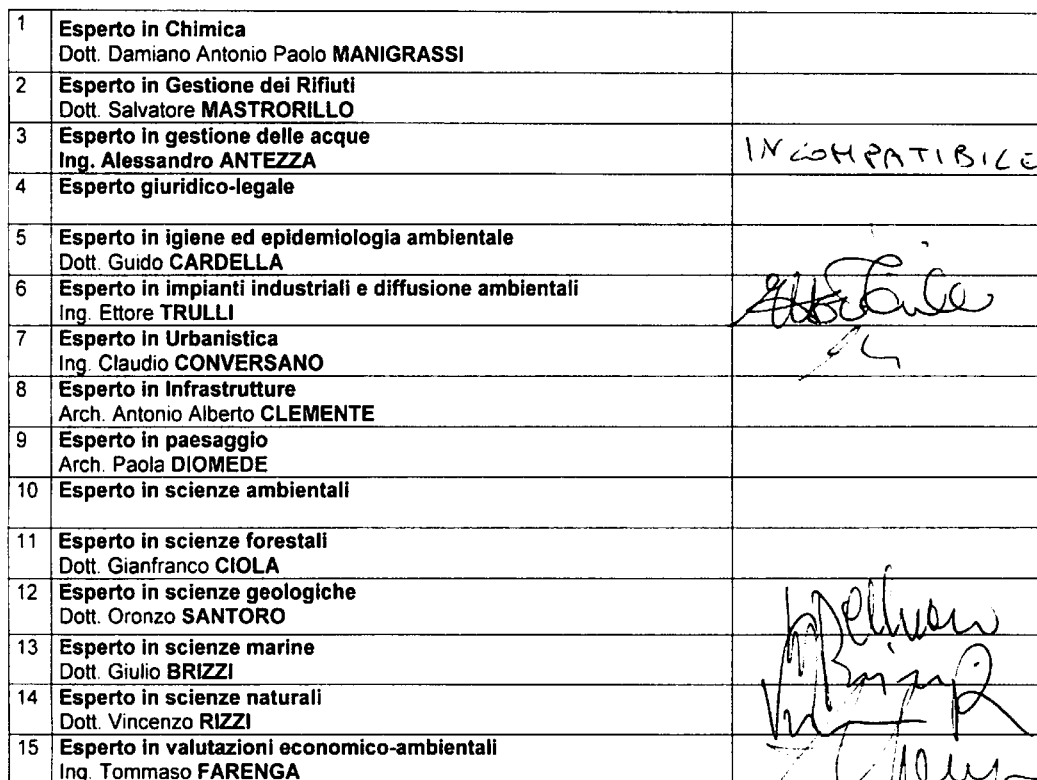 1 Esperto in Chimica
Dott. Damiano Antonio Paolo MANIGRASSI
2 Esperto in Gestione dei Rifiuti
Dott. Salvatore MASTRORILLO
3 Esperto in gestione delle acque
Ing. Alessandro ANTEZZA INCOMPATIBILE
4 Esperto giuridico-legale
5 Esperto in igiene ed epidemiologia ambientale
Dott. Guido CARDELLA
6 Esperto in impianti industriali e diffusione ambientali
Ing. Ettore TRULLI
7 Esperto in Urbanistica
Ing. Claudio CONVERSANO
8 Esperto in Infrastrutture
Arch. Antonio Alberto CLEMENTE
9 Esperto in paesaggio
Arch. Paola DIOMEDE
10 Esperto in scienze ambientali
11 Esperto in scienze forestali
Dott. Gianfranco CIOLA
12 Esperto in scienze geologiche
Dott. Oronzo SANTORO
13 Esperto in scienze marine
Dott. Giulio BRIZZI
14 Esperto in scienze naturali
Dott. Vincenzo RIZZI
15 Esperto in valutazioni economico-ambientali
Ing. Tommaso FARENGA